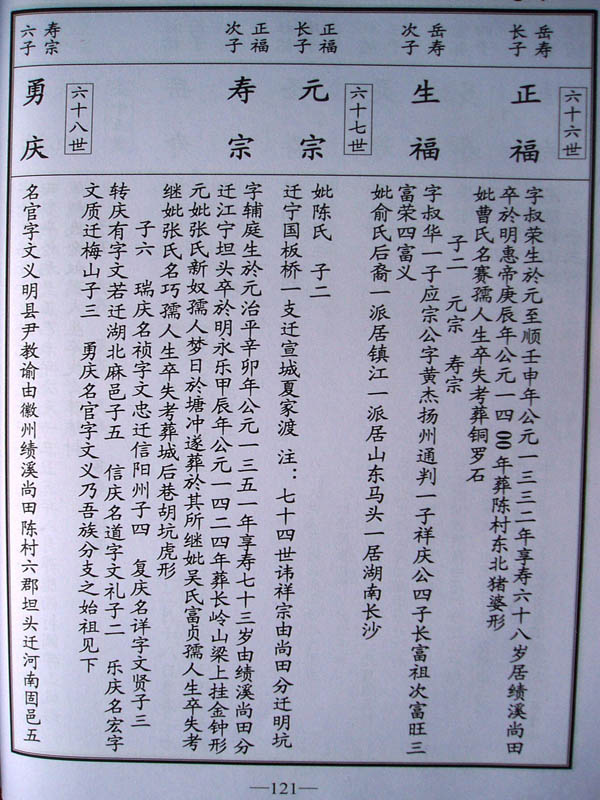 六十六世
岳寿长子
正福
字叔荣生於元至顺壬申年公元一三三二年享寿六十八岁居绩溪尚田
卒於明惠帝庚辰年公元一四00年葬陈村东北猪婆形
妣曹氏名赛孺人生卒失考葬铜罗石
子二 元宗 寿宗
岳寿次子
生福
字叔华一子应宗公字黄杰扬州通判一子祥庆公四子长富祖次富旺三
富荣四富义
妣俞氏后裔一派居镇江一派居山东马头一居湖南长沙
六十七世
正福长子
元宗
妣陈氏 子二
迁宁国板桥一支迁宣城夏家渡 注：七十四世讳祥宗由尚田分迁明坑
正福次子
寿宗
字辅庭生於元治平辛卯年公元一三五一年享寿七十三岁由绩溪尚田分
迁江宁坦头卒於明永乐甲辰年公元一四二四年葬长岭山梁上挂金钟形
元妣张氏新奴孺人梦日於塘冲遂葬於其所继妣吴氏富贞孺人生卒失考
继妣张氏名巧孺人生卒失考葬城后巷胡坑虎形
子六 瑞庆名祯字文忠迁信阳州子四 复庆名详字文贤子三
转庆有字文若迁湖北麻邑子五 信庆名道字文礼子二 乐庆名宏字
文质迁梅山子三 勇庆名官字文义乃吾族分支之始祖见下
六十八世
寿宗六子
勇庆
名官字文义明县尹教谕由徽州绩溪尚田陈村六郡坦头迁河南固邑五
—121—